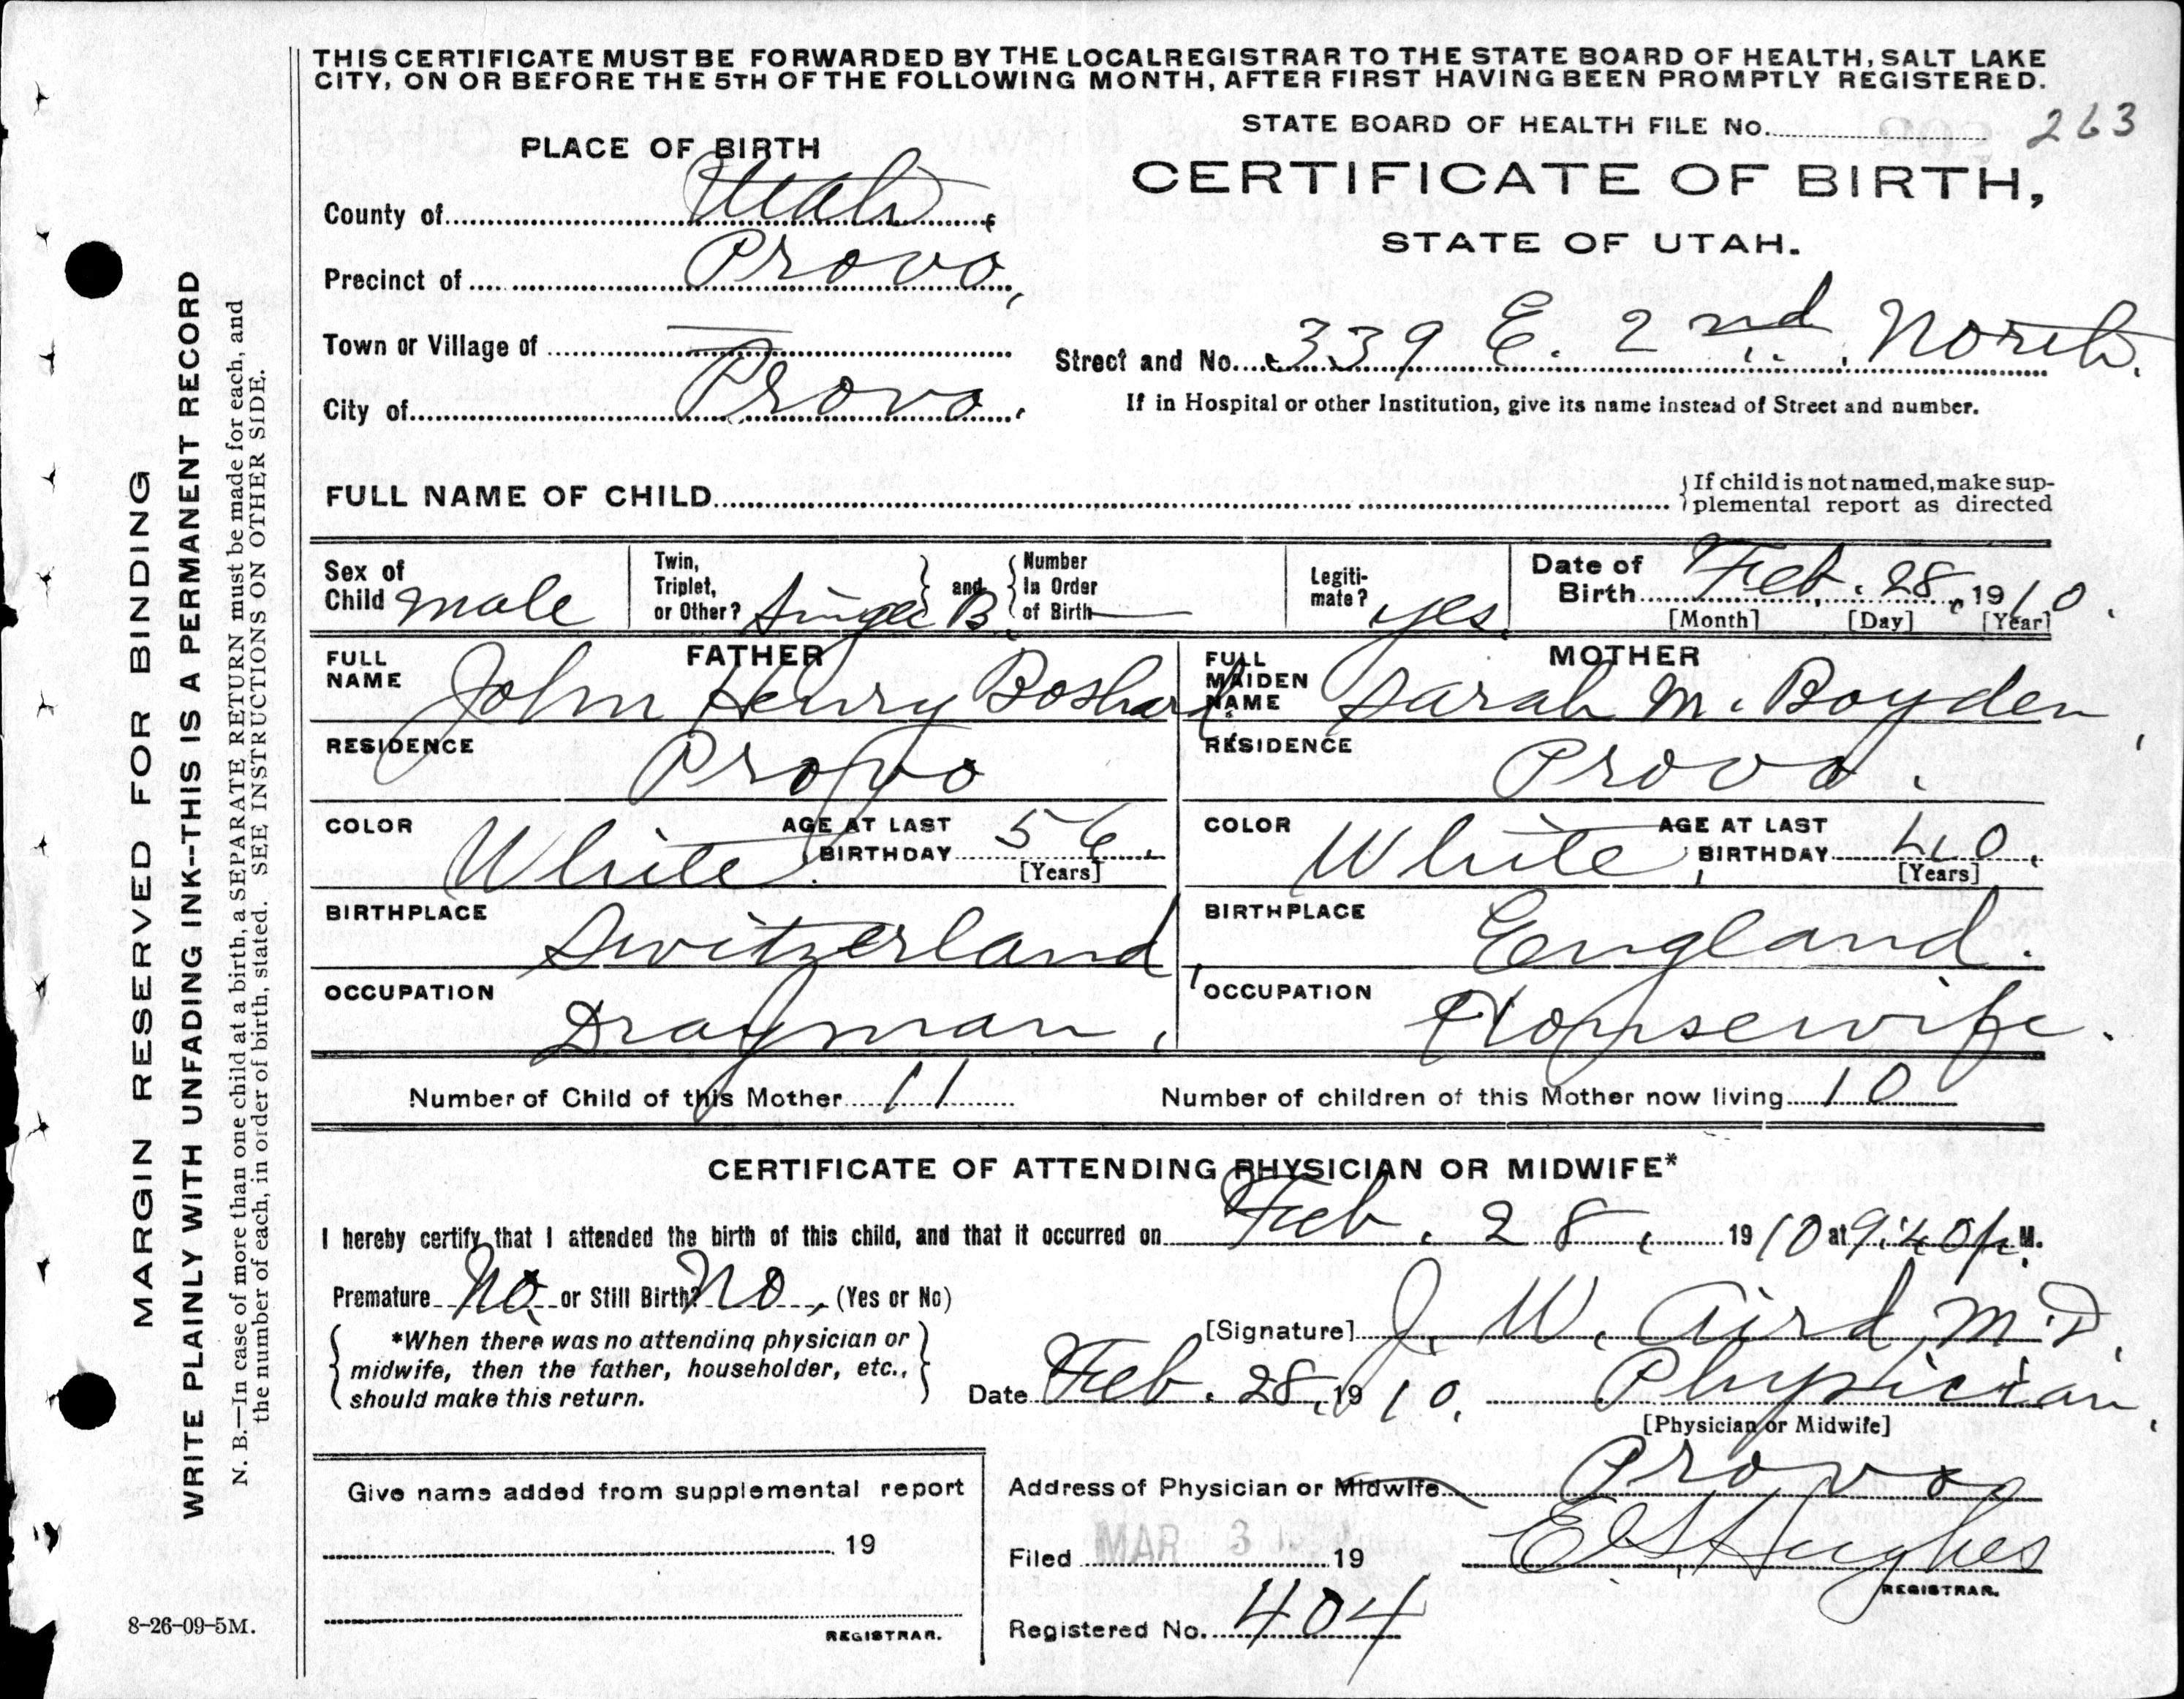 THIS CERTIFICATE MUST BE FORWARDED BY THE LOCAL REGISTRAR TO THE STATE BOARD OF HEALTH, SALT LAKE
CITY, ON OR BEFORE THE 5TH OF THE FOLLOWING MONTH, AFTER FIRST HAVING BEEN PROMPTLY REGISTERED.
STATE BOARD OF HEALTH FILE No. 263
PLACE OF BIRTH
CERTIFICATE OF BIRTH,
STATE OF UTAH.
County of Utah,
Precinct of Provo,
Town or Village of —
Street and No. 339 E. 2nd North.
City of Provo.
If in Hospital or other Institution, give its name instead of Street and number.
FULL NAME OF CHILD
{If child is not named, make sup-
plemental report as directed
Sex of Child male
Twin, Triplet, or Other? Single B. and Number In Order of Birth —
Legiti-mate? yes.
Date of Birth Feb. 28, 1910.
[Month] [Day] [Year]
FATHER
FULL NAME John Henry Boshard.
RESIDENCE Provo
COLOR White. AGE AT LAST BIRTHDAY 56. [Years]
BIRTHPLACE Switzerland,
OCCUPATION Drayman,
MOTHER
FULL MAIDEN NAME Sarah M. Boyden,
RESIDENCE Provo.
COLOR White, AGE AT LAST BIRTHDAY 40. [Years]
BIRTHPLACE England.
OCCUPATION Housewife.
Number of Child of this Mother 11
Number of children of this Mother now living 10
CERTIFICATE OF ATTENDING PHYSICIAN OR MIDWIFE*
I hereby certify that I attended the birth of this child, and that it occurred on Feb. 28, 1910 at 9:40 p. M.
Premature No. or Still Birth? No, (Yes or No)
*When there was no attending physician or
midwife, then the father, householder, etc.,
should make this return.
[Signature] J. W. Aird, M.D.,
Date Feb. 28, 1910. Physician.
[Physician or Midwife]
Address of Physician or Midwife Provo
Give name added from supplemental report
19
REGISTRAR.
Filed MAR 3 19
E S Hughes
REGISTRAR.
Registered No. 404
8-26-09-5M.
MARGIN RESERVED FOR BINDING
WRITE PLAINLY WITH UNFADING INK--THIS IS A PERMANENT RECORD
N. B.—In case of more than one child at a birth, a SEPARATE RETURN must be made for each, and
the number of each, in order of birth, stated. SEE INSTRUCTIONS ON OTHER SIDE.